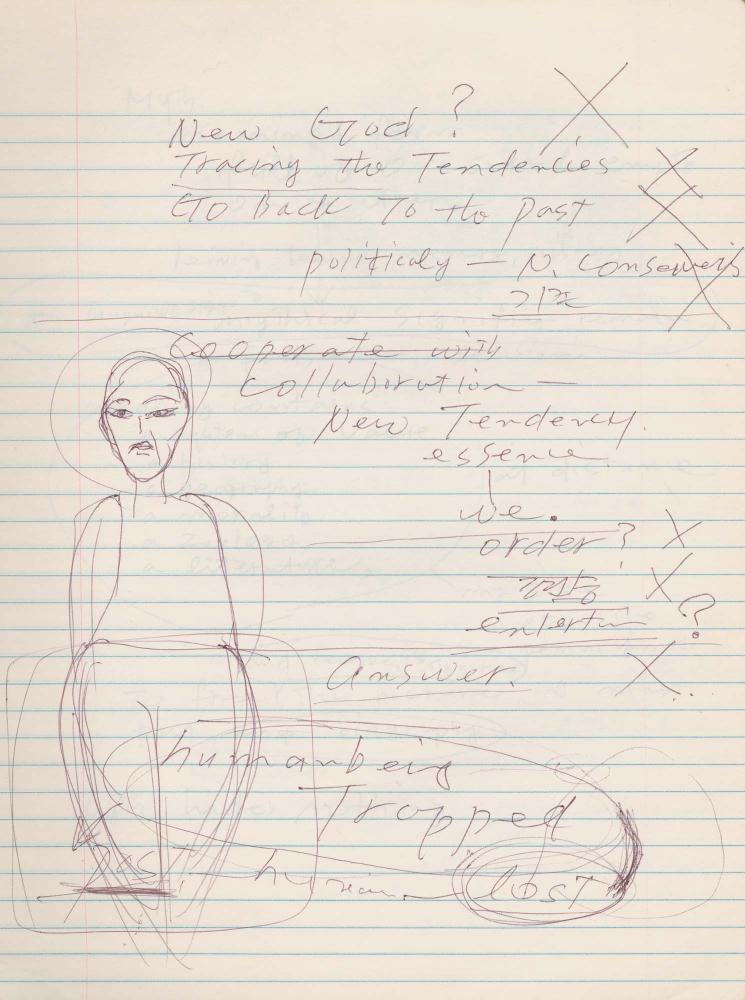 New God ?
Tracing the Tendencies
Go Back To the past
politicaly — N. Conservertis
기존
Cooperate with
Collaboration —
New Tendency.
essence
we.
order ?
entertain ?
Answer.
humanbeing
Trapped
past human lost